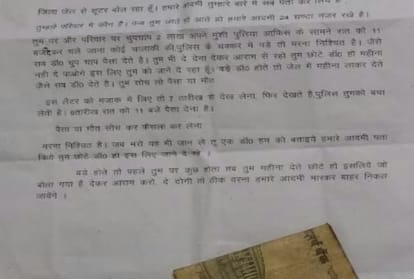 जिला जेल से शूटर बोल रहा हूँ। हमारे आदमी तुम्हारे बारे में सब पता कर लिये है
तुम्हारे परिवार में कौन है। कब तुम जाते हो आते हो हमारे आदमी 24 घण्टा नजर रखे है।
तुम पर और परिवार पर चुपचाप 2 लाख अपने मुंशी पुलिया आफिस के सामने रात को 11
बजे देकर चले जाना कोई चालाकी की पुलिस के चक्कर में पड़े तो मरना निश्चित है। जैसे
सब डॉ0 चुप चाप पैसा देते है। तुम भी दे देना आराम से रहो तुम छोटे डॉ0 हो महीना
नही दे पाओगे इस लिए तुम को जाने दे रहा हूँ। बड़े डॉ0 होते तो जेल में महीना लाकर देते
जैसे सब डॉ0 देते है। तुम सोच लो पैसा या मौत
इस लेटर को मजाक में लिए तो 7 तारीख से देख लेना, फिर देखते है पुलिस तुमको बचा
लेती है। 6 तारीख रात को 11 बजे पैसा देना है।
पैसा या मौत सोच कर फैसला कर लेना
मरना निश्चित है। जब मरो यह भी जान लो तू एक डॉ0 हम को बताइये हमारे आदमी पता
किये तुम छोटे डॉ0 हो इस लिए जाने दे रहे ।
बड़े होते तो पहले तुम पर कुछ होता तब तुम महीना देते छोटे हो इसलिये जो
बोला गया है देकर आराम करो, दे दोगे तो ठीक वरना हमारे आदमी मारकर बाहर निकल
जायेंगे ।